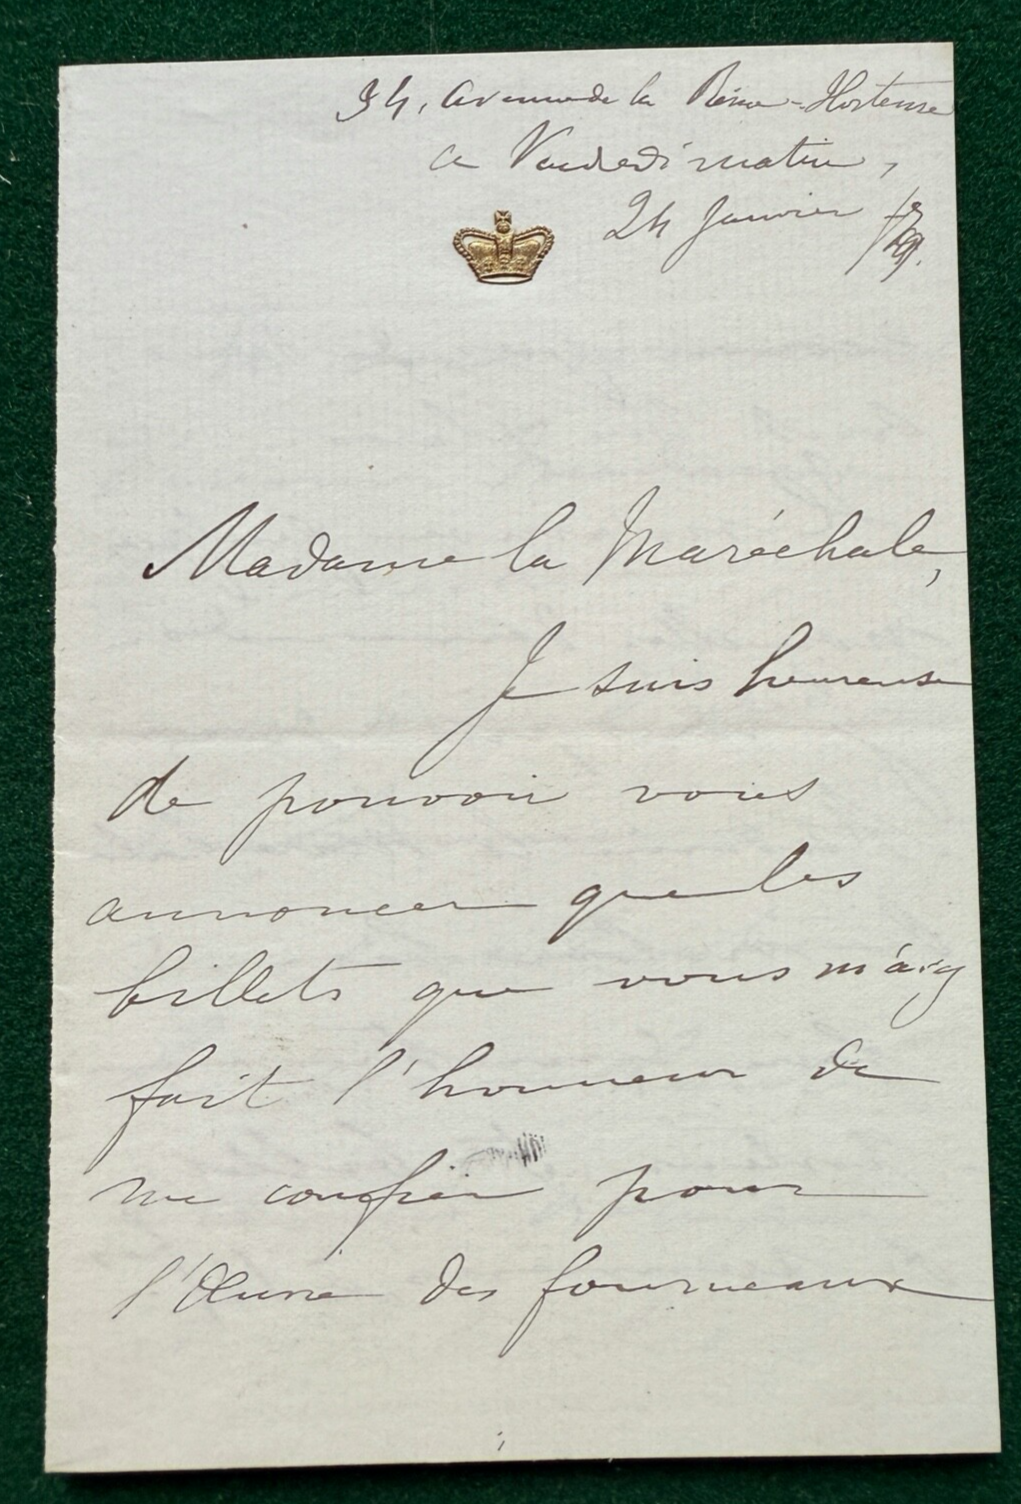 34, Avenue de la Reine-Hortense
ce Vendredi matin,
24 Janvier /79.
Madame la Maréchale,
Je suis heureuse
de pouvoir vous
annoncer que les
billets que vous m'avez
fait l'honneur de
me confier pour
l'Œuvre des fourneaux